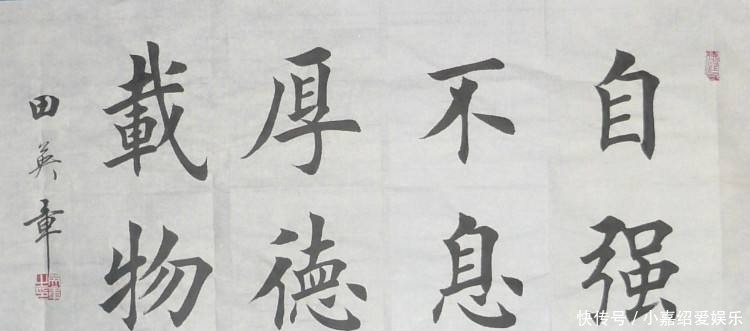 自强
不息
厚德
載物
田英章
快传号/小嘉绍爱娱乐